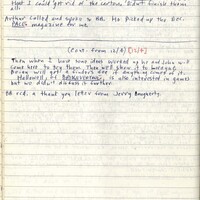 that I could get rid of the cartoon. Didn't finish them
all.
Arthur called and spoke to BB. He picked up the
magazine for me.
(Cont. from 12/3) [12/4]
Then when I have some ideas worked up he and John will
come here to try them. Then we'll show it to
Boino will get a finders fee if anything comes of it.
is also interested in games
but we didn't discuss it further.
BB rcd. a thank you letter from Jerry Dougherty.